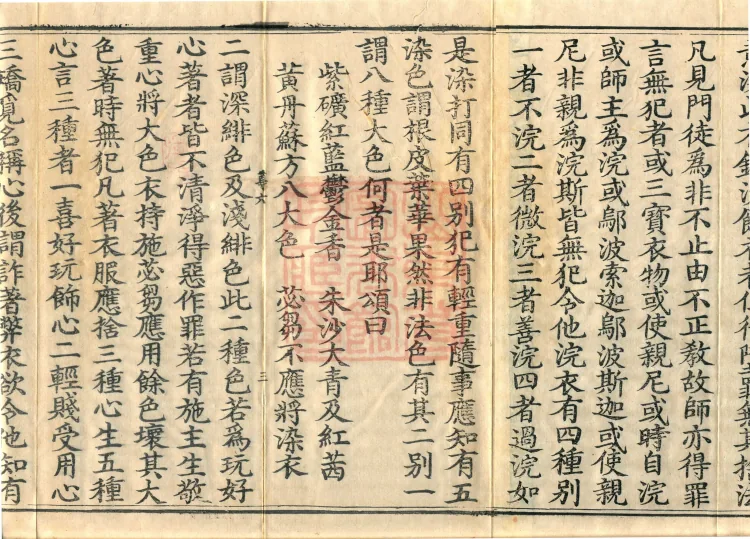 凡見門徒為非不止由不正教故師亦得罪
言無犯者或三寶衣物或使親尼或時自浣
或師主為浣或鄔波索迦鄔波斯迦或使親
尼非親為浣斯皆無犯令他浣衣有四種別
一者不浣二者微浣三者善浣四者過浣如
是染打同有四別犯有輕重隨事應知有五
染色謂根皮葉華果然非法色有其二別一
謂八種大色何者是耶頌曰
紫礦紅藍鬱金香 朱沙大青及紅茜
黃丹蘇方八大色 苾芻不應將染衣
二謂深緋色及淺緋色此二種色若為玩好
心著者皆不清淨得惡作罪若有施主生敬
重心將大色衣持施苾芻應用餘色壞其大
色著時無犯凡著衣服應捨三種心生五種
心言三種者一喜好玩飾心二輕賤受用心
三矯覓名稱心後謂詐著弊衣欲令他知有